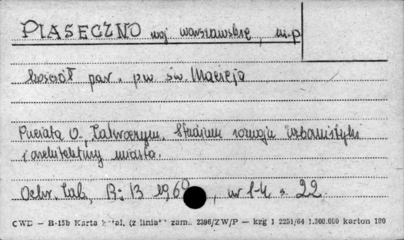 PIASECZNO woj warszawskie, m.p
kościół par. p.w św. Macieja
Puciata O., Zakroczym. Studium rozwoju urbanistyki
i architektury miasta.
Ochr. Zab, R: 13 1960, nr 1-4 s. 22
CWD — B-15b Karta (z linia zam. 2396/Z/W/P — kzg 1 2251/64 1.500.000 karton 180